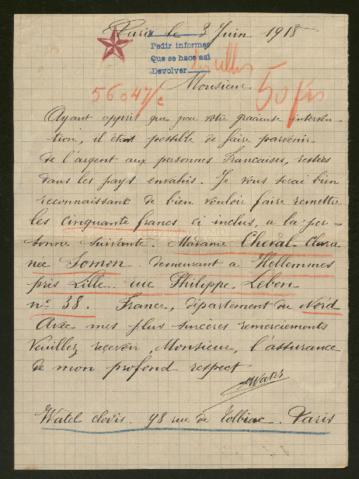 Paris le 3 Juin 1918
Pedir informes
Que se hace así
Devolver
Monsieur
56047/c
50 frs
Ayant appris que par votre gracieuse interven-
tion, il était possible de faire parvenir
de l'argent aux personnes Francaises, restées
dans les pays envahis. Je vous serai bien
reconnaissant de bien vouloir faire remettre
les Cinquante francs ci inclus, a la per-
sonne suivante. Madame Cheval
née demeurant a Hellemmes
près Lille rue Philippe Lebon
n° 38. France, département du Nord
Avec mes plus sincères remerciements
Veuillez recevoir, Monsieur, l'assurance
de mon profond respect
Watel
Watel Clovis 98 rue de Tolbiac Paris